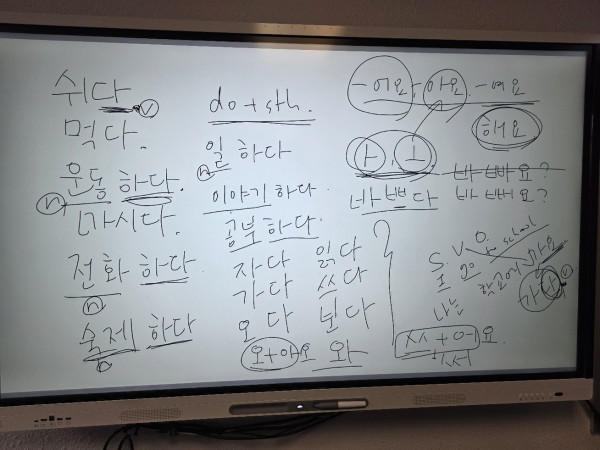 쉬다 v
먹다.
운동 하다.
n
마시다.
전화 하다
n
숙제 하다
n
do + sth.
일 하다
n
이야기 하다
공부 하다.
자다 읽다
가다 쓰다
오다 보다
오+아요 와
-어요, 아요 -여요
해요
ㅏ, ㅗ
바쁘다
바빠요?
바뻐요?
S. V O. to school
I go 학교에 가요
나는 가다 v
ㅆ + 어요
써